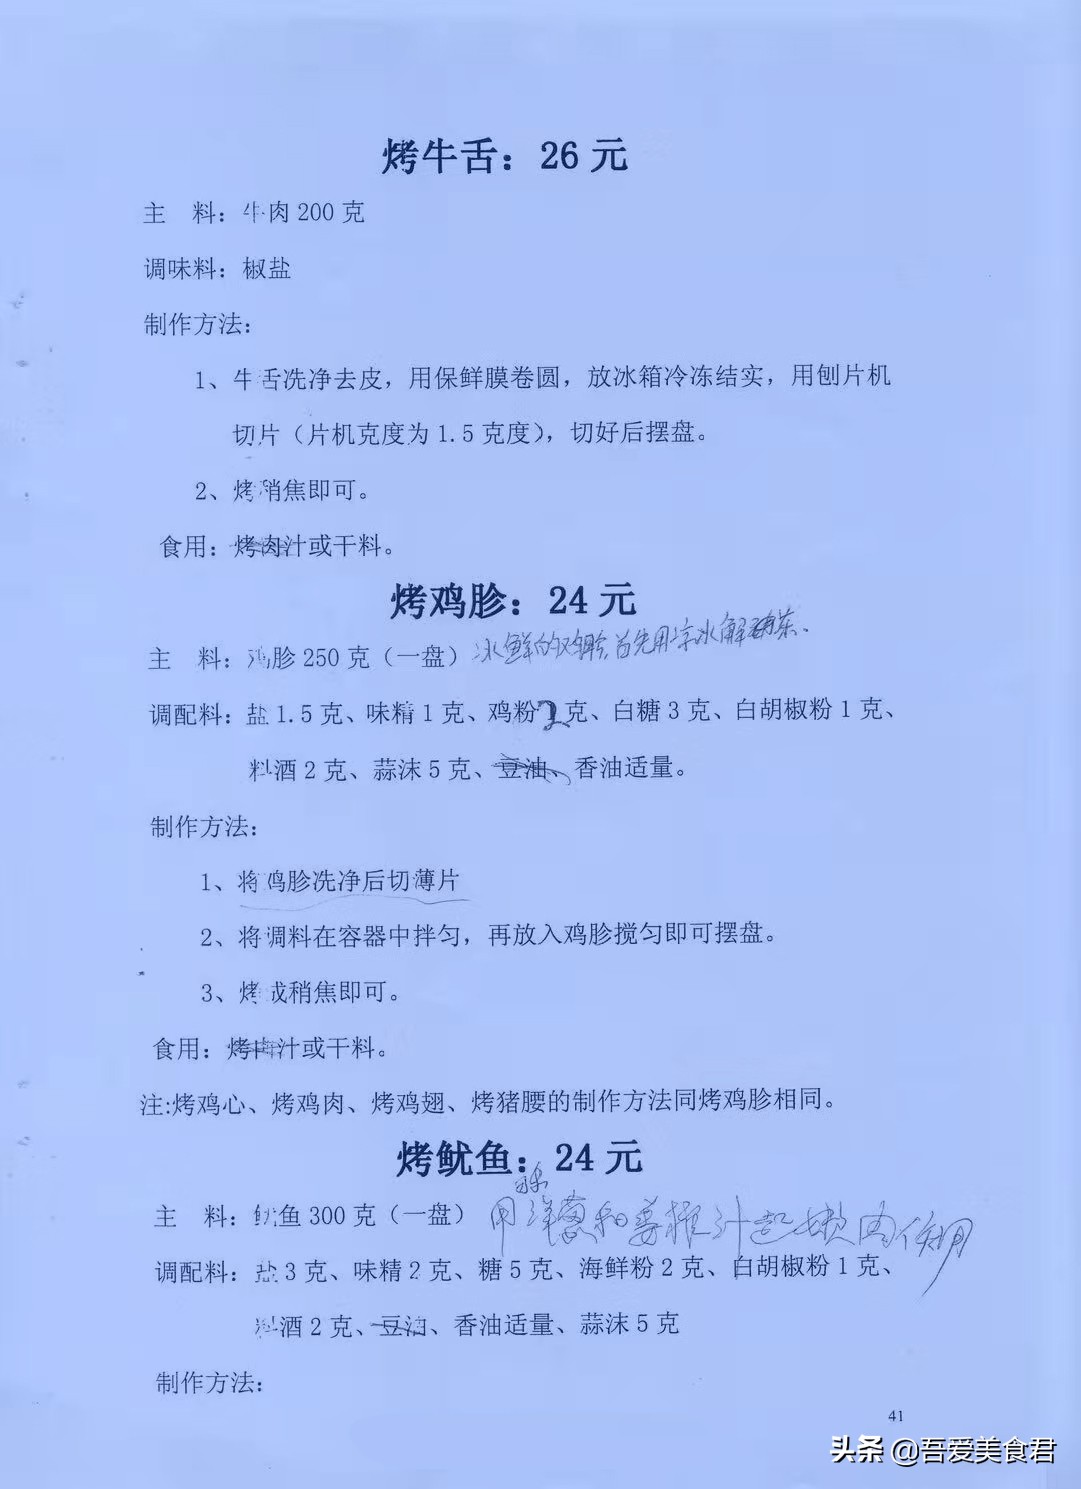 烤牛舌：26 元
主　料：牛肉 200 克
调味料：椒盐
制作方法：
1、牛舌洗净去皮，用保鲜膜卷圆，放冰箱冷冻结实，用刨片机
切片（片机克度为 1.5 克度），切好后摆盘。
2、烤稍焦即可。
食用：烤肉汁或干料。
烤鸡胗：24 元
主　料：鸡胗 250 克（一盘）冰鲜的鸡胗，首先用凉水解冻。
调配料：盐 1.5 克、味精 1 克、鸡粉 2 克、白糖 3 克、白胡椒粉 1 克、
料酒 2 克、蒜沫 5 克、豆油、香油适量。
制作方法：
1、将鸡胗洗净后切薄片
2、将调料在容器中拌匀，再放入鸡胗搅匀即可摆盘。
3、烤成稍焦即可。
食用：烤肉汁或干料。
注:烤鸡心、烤鸡肉、烤鸡翅、烤猪腰的制作方法同烤鸡胗相同。
烤鱿鱼：24 元
主　料：鱿鱼 300 克（一盘）用洋葱和姜榨汁起嫩肉作用
调配料：盐 3 克、味精 2 克、糖 5 克、海鲜粉 2 克、白胡椒粉 1 克、
料酒 2 克、豆油、香油适量、蒜沫 5 克
制作方法：
41
头条 @吾爱美食君